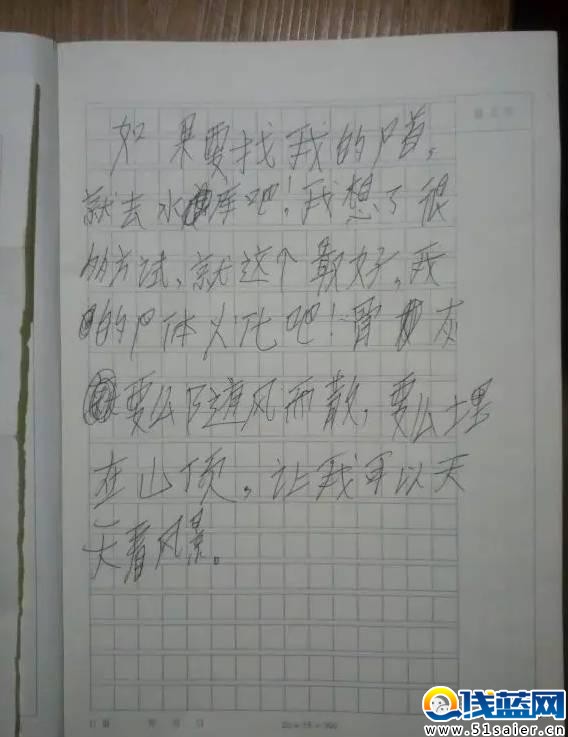 如果要找我的尸首,
就去水库吧!我想了很
多方试,就这个最好,我
的尸体火化吧!骨灰
要么随风而散,要么埋
在山顶,让我可以天
天看风景。
蓝网
www.51saier.cn